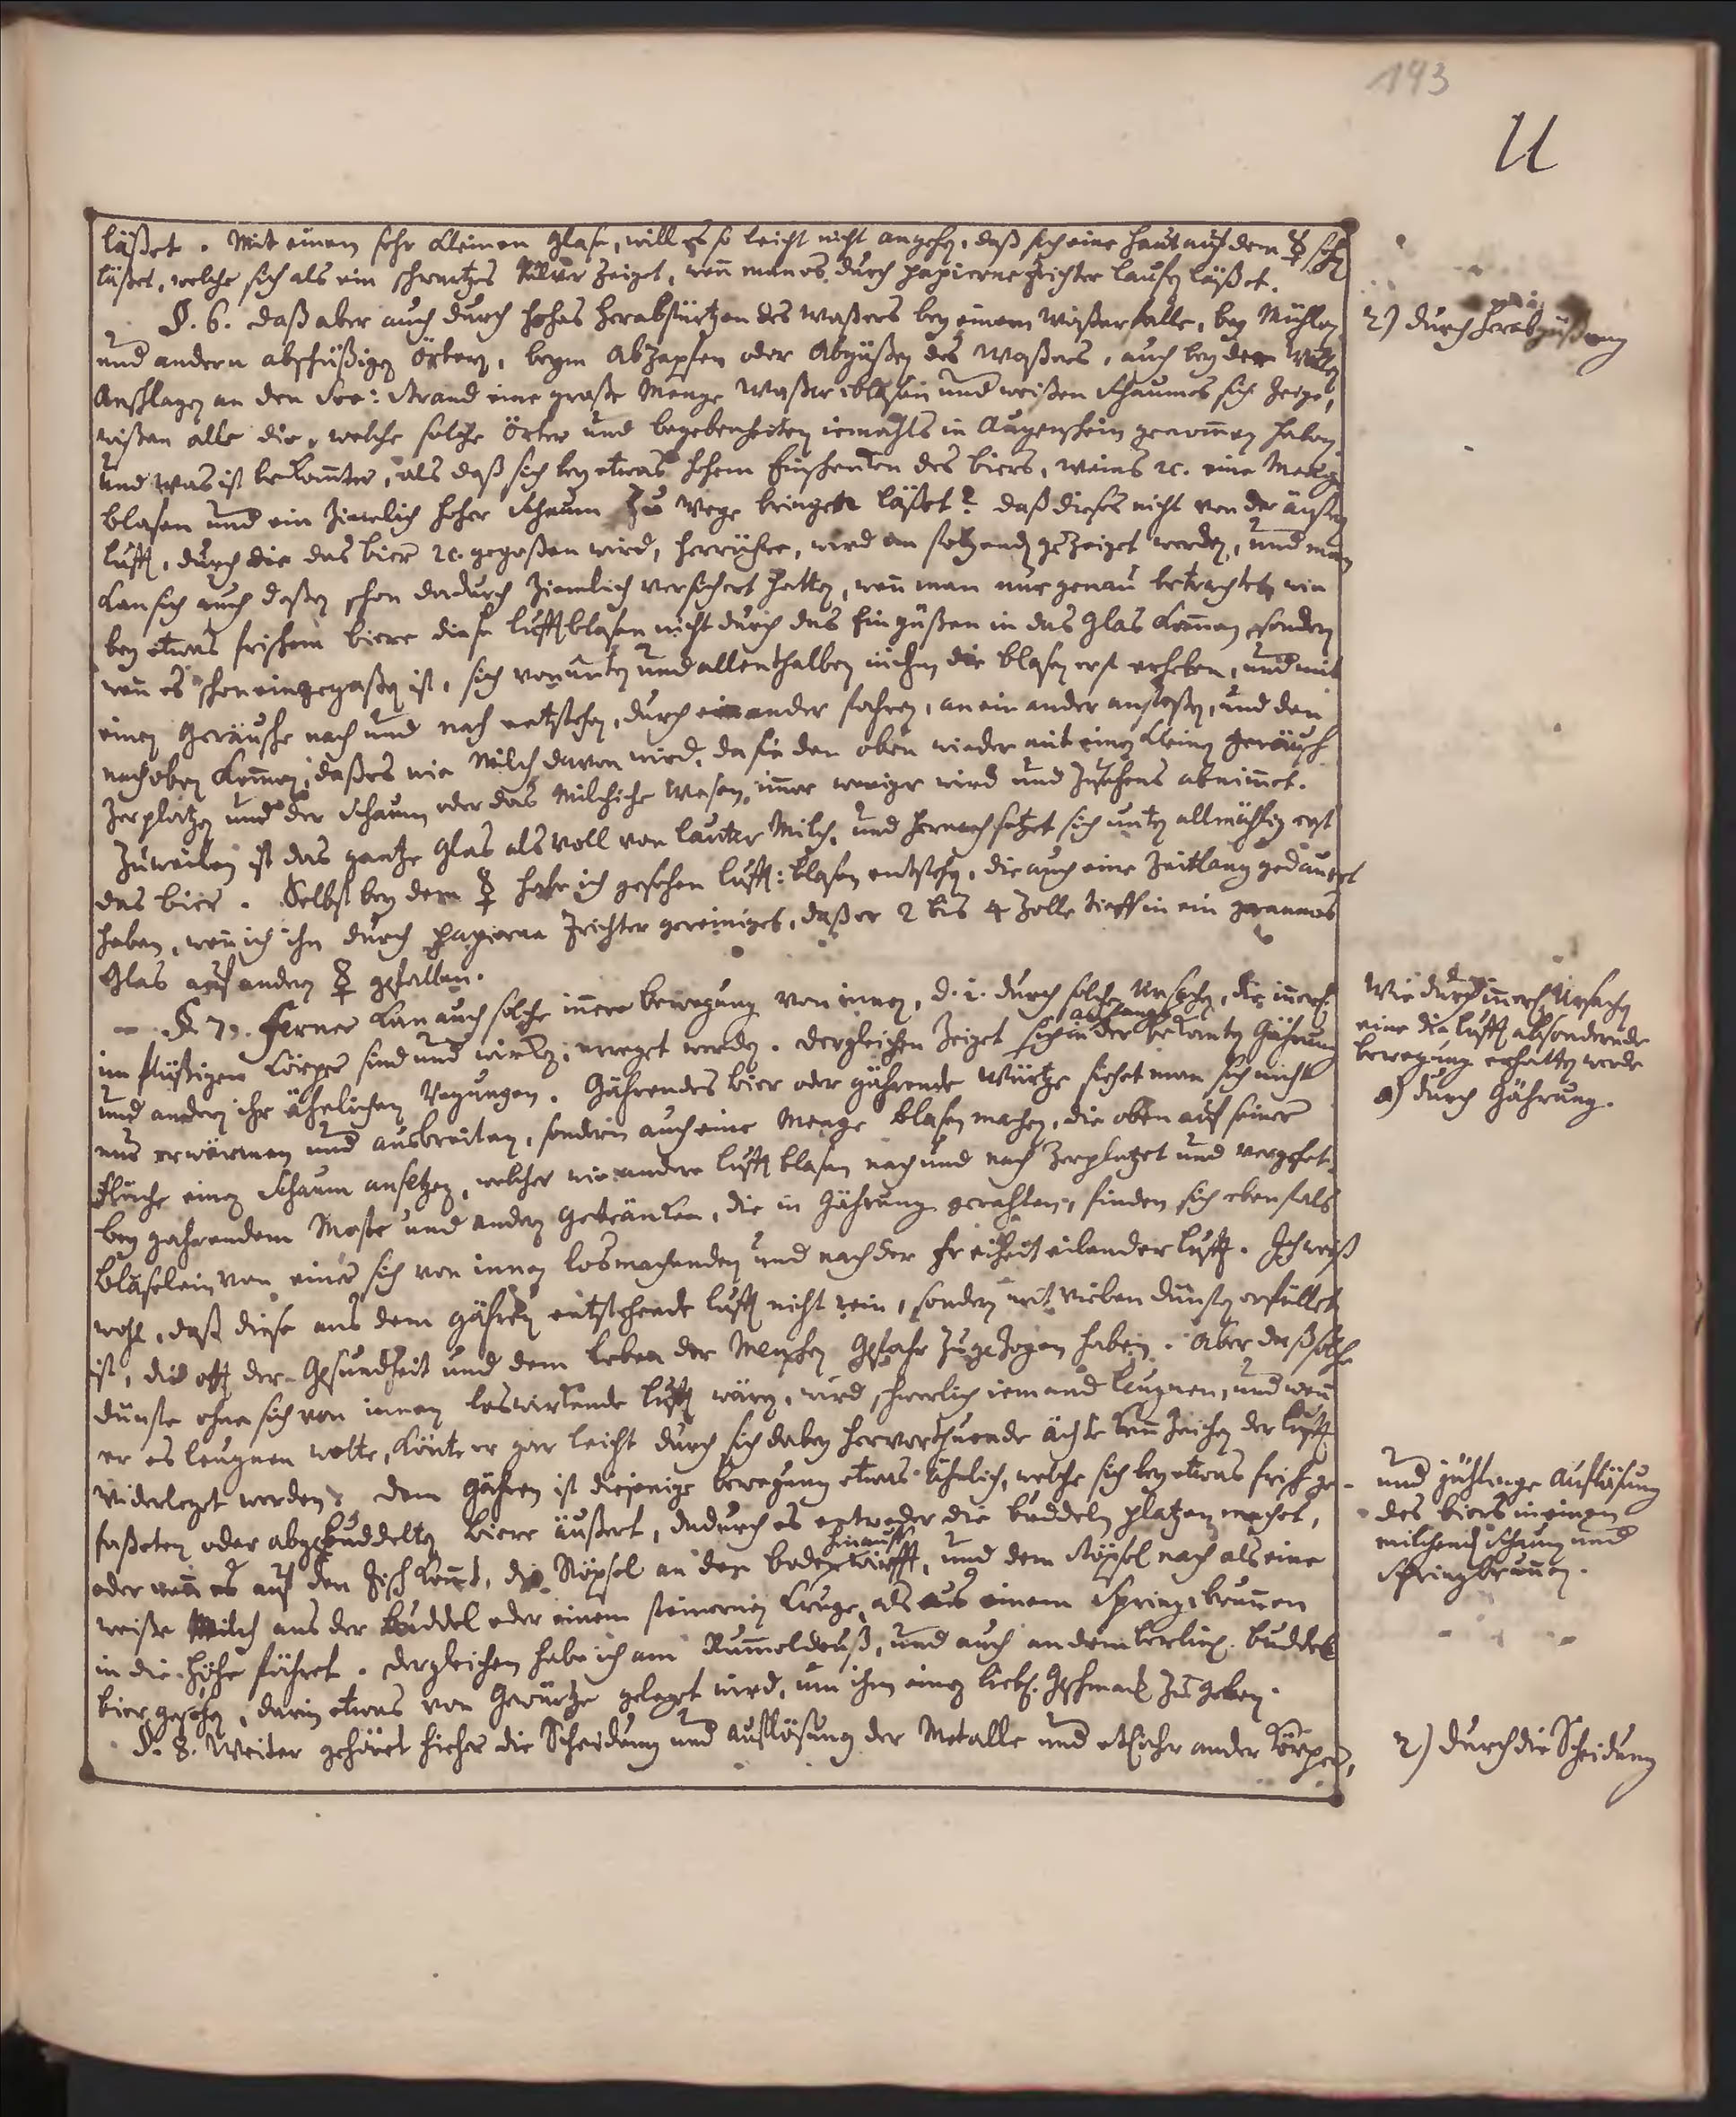 193
U
läßet. Mit einem sehr kleinen Glase, will es so leicht nicht angehen, daß sich eine Haut auf dem ☿ sehen
läßet, welche sich als ein schwartzes Pulver zeiget, wen̄ man es durch papierne Trichter lauffen läßet.
§. 6. Daß aber auch durch hohes Herabstürtzen des Waßers bey einem Waßerfalle, bey Mühlen
und andern abschüßigen Örtern, beym Abzapfen oder Abgüßen des Waßers, auch bey der Wellen
Anschlagen an den See: Strand eine große Menge Waßerblasen und weißen Schaumes sich zeige,
wißen alle die, welche solche Örter und begebenheiten iemahls in Augenschein genom̄en haben.
Und was ist bekan̄ter, als daß sich bey etwas hohem Einschenken des biers, weins ꝛc. eine Menge
blasen und ein zimlich hoher Schaum zu Wege bringen läßet? daß dieses nicht von der äußern
lufft, durch die das bier ꝛc. gegoßen wird, herrühre, wird im folgenden gezeiget werden, und man
kan sich auch deßen schon dadurch ziemlich versichert halten, wen̄ man nur genau betrachtet, wie
bey etwas frischem biere diese lufftblasen nicht durch das Eingüßen in das Glas kom̄en, sondern
wen̄ es schon eingegoßen ist, sich von unten und allenthalben in ihm die blasen erst erheben, und mit
einem Geräusche nach und nach entstehen, durch einander fahren, an ein ander anstoßen, und den
nach oben kom̄en, daß es wie Milch davon wird, da sie den oben wieder mit einem kleinen Geräusch
zerplatzen und der Schaum oder das Milchiche Wesen, im̄er weniger wird und zusehens abnim̄et.
Zuweilen ist das gantze Glas als voll von lauter Milch, und hernach setzet sich unten allmählig erst
das bier. Selbst bey dem ☿ habe ich gesehen lufft: blasen entstehen, die auch eine Zeitlang gedauert
haben, wen̄ ich ihn durch papierne Trichter gereiniget, daß er 2 bis 4 Zolle tieff in ein
Glas auf andern ☿ gefallen.
§. 7. Ferner kan auch solche in̄ere bewegung von innen, d. i. durch solche Ursachen, die in̄erh.
im flüßigen Cörper sind und wirken, erreget werden. Dergleichen zeiget sich in der bekanten Gährung
und andern ihr ähnlichen Regungen. Gährendes bier oder gährende Würtze siehet man sich nicht
nur erwärmen und ausbreiten, sondern auch eine Menge blasen machen, die oben auf seiner
Fläche einen Schaum ansetzen, welcher wie andere lufftblasen nach und nach zerplatzet und vergehet.
bey gährendem Moste und andern Getränken, die in Gährung gerahten, finden sich ebenfals
bläselein von einer sich von innen losmachenden und nach der Freiheit eilender lufft. Ich weiß
wohl, daß diese aus dem gähren entstehende lufft nicht rein, sondern mit vielen dünsten erfüllet
ist, die offt der Gesundheit und dem leben der Menschen Gefahr zugezogen haben. Aber daß solche
dünste ohne sich von innen loswirkende lufft wären, wird schwerlich iemand leugnen, und wen̄
er es leugnen wolte, könte er gar leicht durch sich dabey hervorthuende ächte kenzeichen der lufft
widerleget werden. Dem Gähren ist diejenige bewegung etwas ähnlich, welche sich bey etwas frisch ge-
faßeten oder abgebuddelten biere äußert, dadurch es entweder die buddeln platzen machet,
oder wen̄ es auf den Tisch kom̄t, die Stöpsel an den boden hinauf wirfft, und dem Stöpsel nach als eine
weiße Milch aus der buddel oder einem steinernen kruge, als aus einem Springbrun̄en
in die Höhe fähret. Dergleichen habe ich am Rum̄oldeuß, und auch an dem berlin. buddel
bier gesehen, darin etwas von Gewürtze geleget wird, um ihm einen liebl. Geschmack zu geben.
§. 8. Weiter gehöret hieher die Scheidung und Auflösung der Metalle und etlicher ander Körper,
2) durch Herabgüßung
Wie durch in̄erl. Ursachen
eine die lufft absondernde
bewegung erhalten werde
a) durch Gährung.
und gählinge Auflösung
des biers in einen
milchend. Schaum und
Springbrun̄en.
2) durch die Scheidung